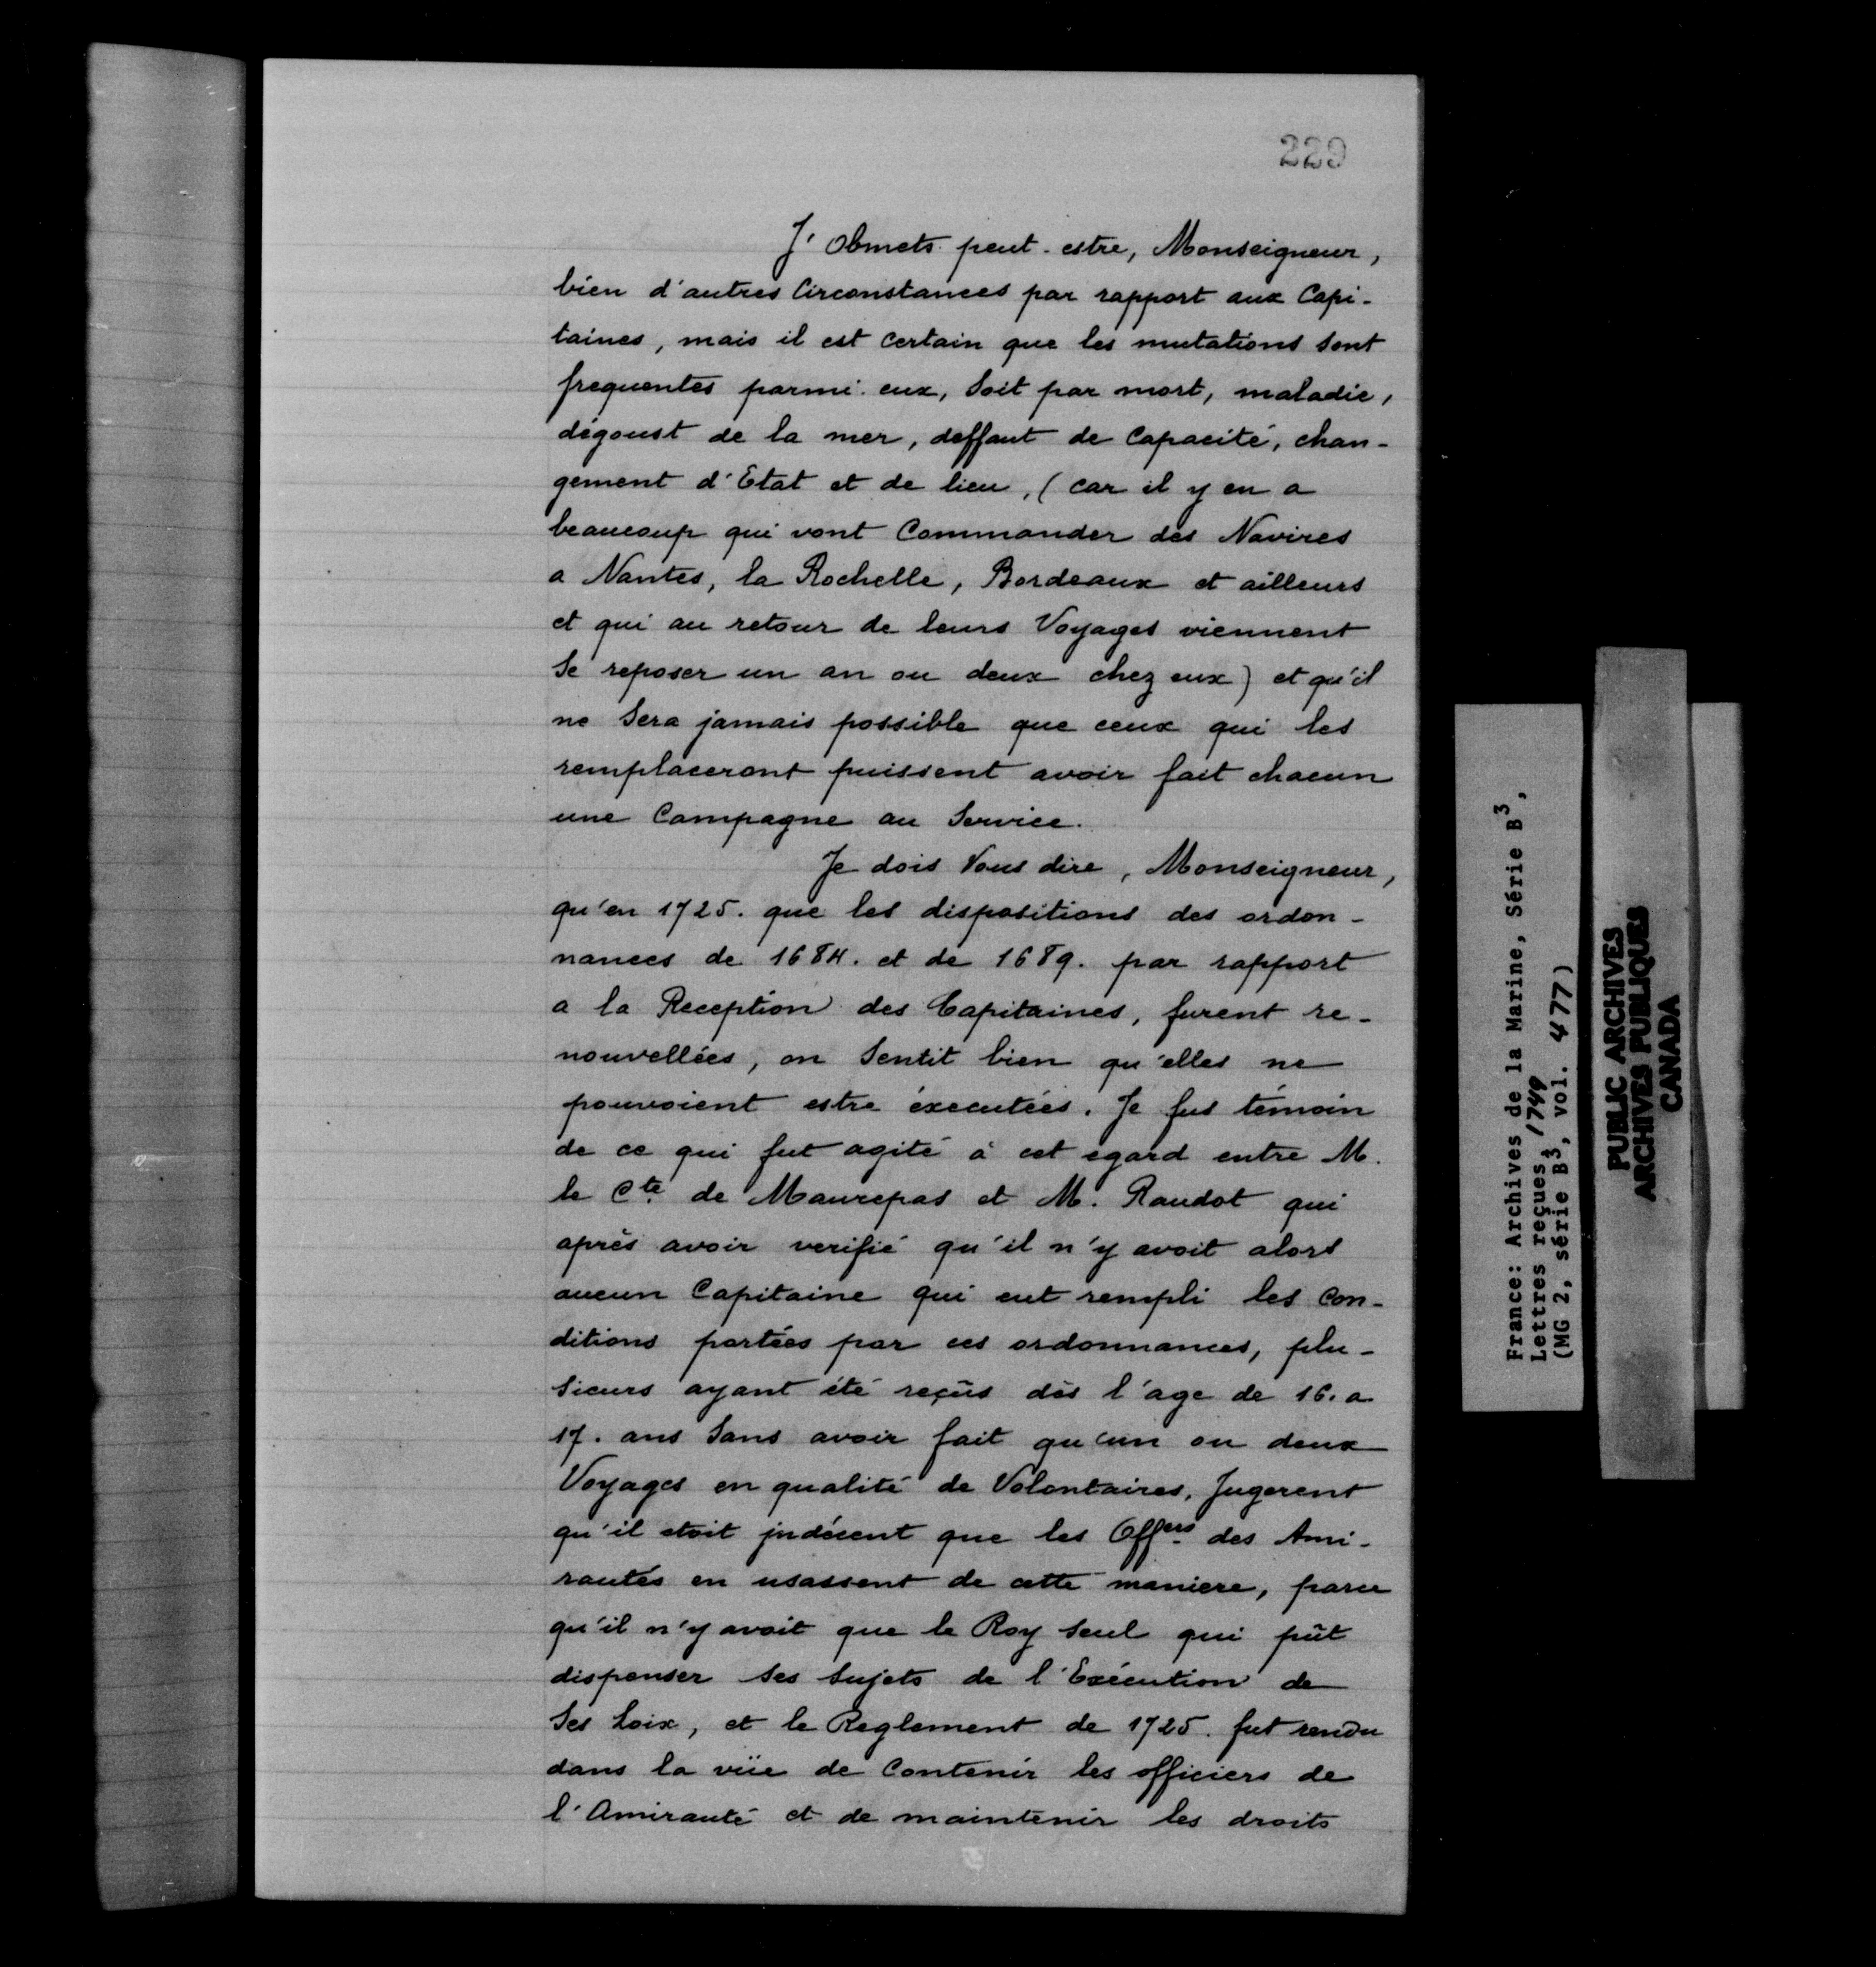 229
J'obmets peut-estre, Monseigneur,
bien d'autres Circonstances par rapport aux Capi-
taines, mais il est certain que les mutations sont
frequentes parmi eux, soit par mort, maladie,
dégoust de la mer, deffaut de Capacité, chan-
gement d'Etat et de lieu, (car il y en a
beaucoup qui vont Commander des Navires
a Nantes, la Rochelle, Bordeaux et ailleurs
et qui au retour de leurs Voyages viennent
se reposer un an ou deux chez eux) et qu'il
ne sera jamais possible que ceux qui les
remplaceront puissent avoir fait chacun
une Campagne au Service.
Je dois Vous dire, Monseigneur,
qu'en 1725. que les dispositions des ordon-
nances de 1684. et de 1689. par rapport
a la Reception des Capitaines, furent re-
nouvellées, on sentit bien qu'elles ne
pouvoient estre éxecutées. Je fus témoin
de ce qui fut agité à cet egard entre M.
le Cte de Maurepas et M. Raudot qui
après avoir verifié qu'il n'y avoit alors
aucun Capitaine qui eut rempli les Con-
ditions portées par ces ordonnances, plu-
sieurs ayant été reçûs dès l'age de 16. a
17. ans sans avoir fait qu'un ou deux
Voyages en qualité de Volontaires, Jugerent
qu'il étoit jndécent que les Offers des Ami-
rautés en usassent de cette maniere, parce
qu'il n'y avoit que le Roy seul qui pût
dispenser ses sujets de l'Exécution de
ses Loix, et le Reglement de 1725. fut rendu
dans la vüe de Contenir les officiers de
l'Amirauté et de maintenir les droits
France: Archives de la Marine, Série B3,
Lettres reçues, 1749
(MG 2, série B3, vol. 477)
PUBLIC ARCHIVES
ARCHIVES PUBLIQUES
CANADA